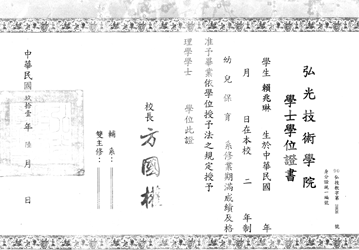 弘光技術學院
學士學位證書
學生 賴兆琳 生於中華民國 年
月 日在本校 二 年制
幼兒保育 系修業期滿成績及格
准予畢業依學位授予法之規定授予
理學學士 學位此證
校長 方國權
輔系：
雙主修：
中華民國 玖拾壹 年 陸 月 日